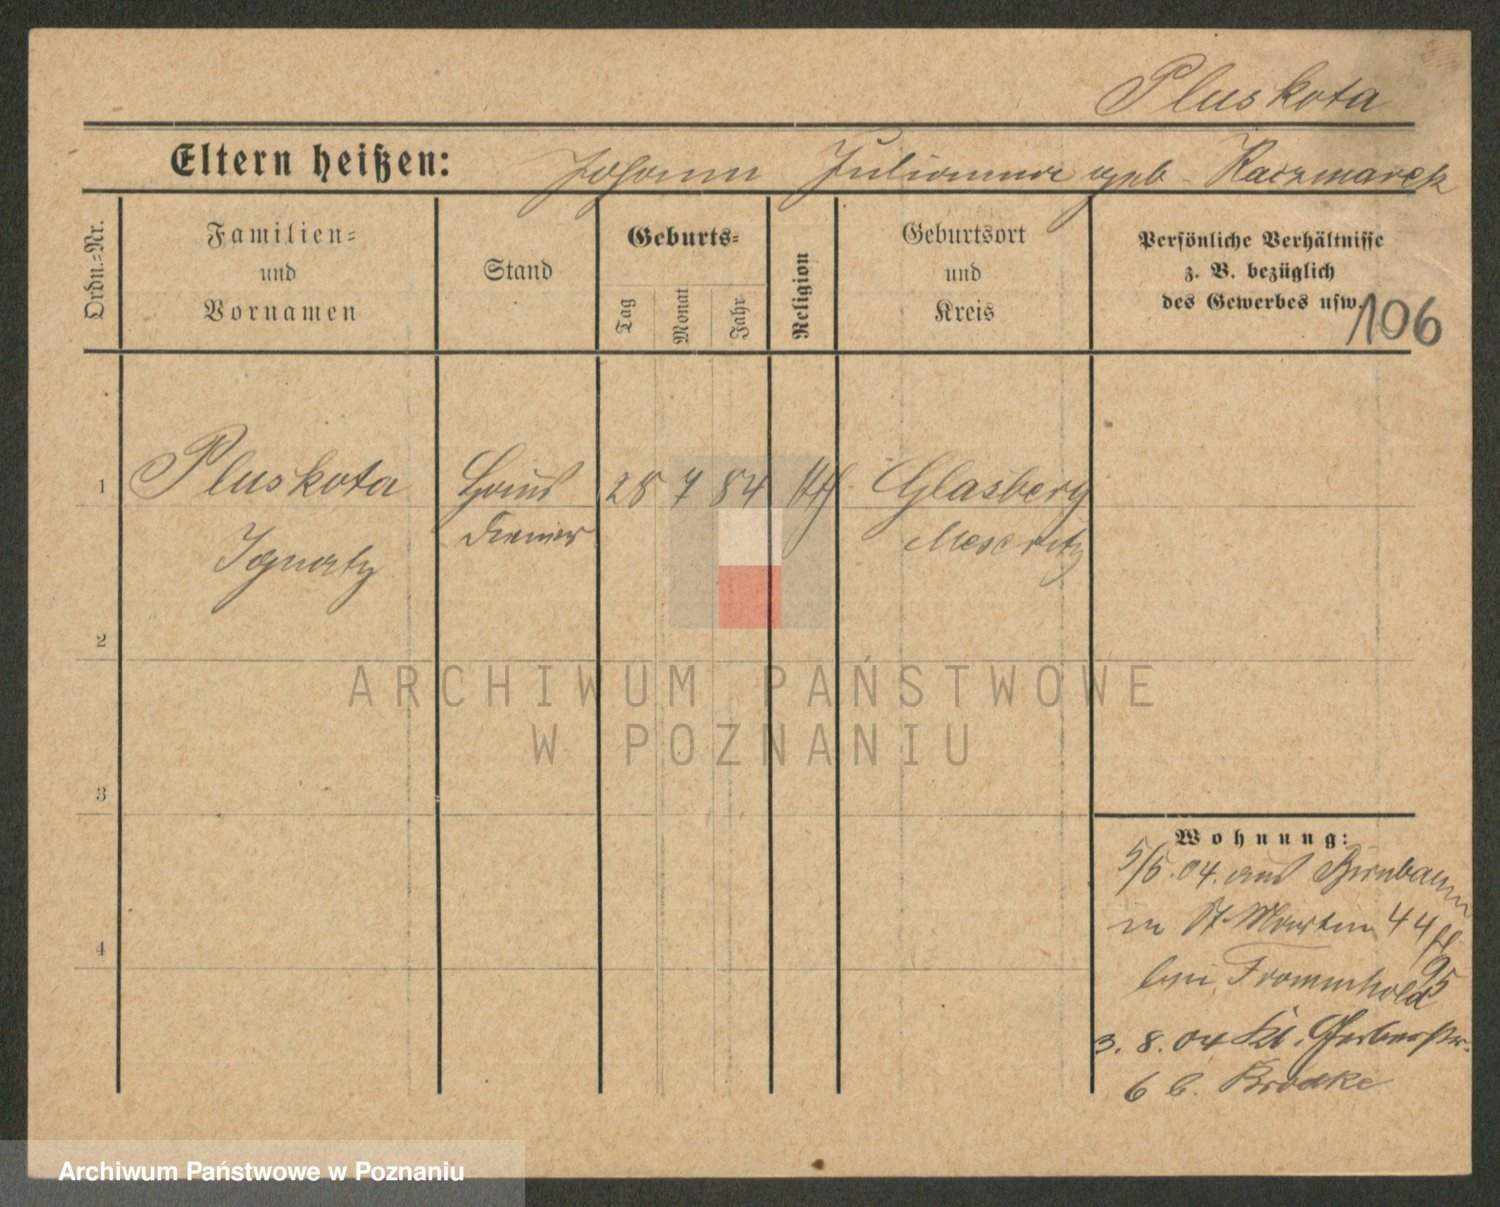 Pluskota
Eltern heißen: Johann Julianna geb. Kaczmarek
Ordn.=Nr.
Familien=
und
Vornamen
Stand
Geburts=
Tag
Monat
Jahr
Religion
Geburtsort
und
Kreis
Persönliche Verhältnisse
z. B. bezüglich
des Gewerbes usw.
106
1 Pluskota Haus 28 7 84 kth Glasberg
Ignatz diener Meseritz
2
3
4
Wohnung:
5/5.04. aus Birnbaum
in St. Martin 44
bei Frommhold
3. 8. 04 Kl. Gerberstr.
6 b. Brodke
ARCHIWUM PAŃSTWOWE
W POZNANIU
Archiwum Państwowe w Poznaniu